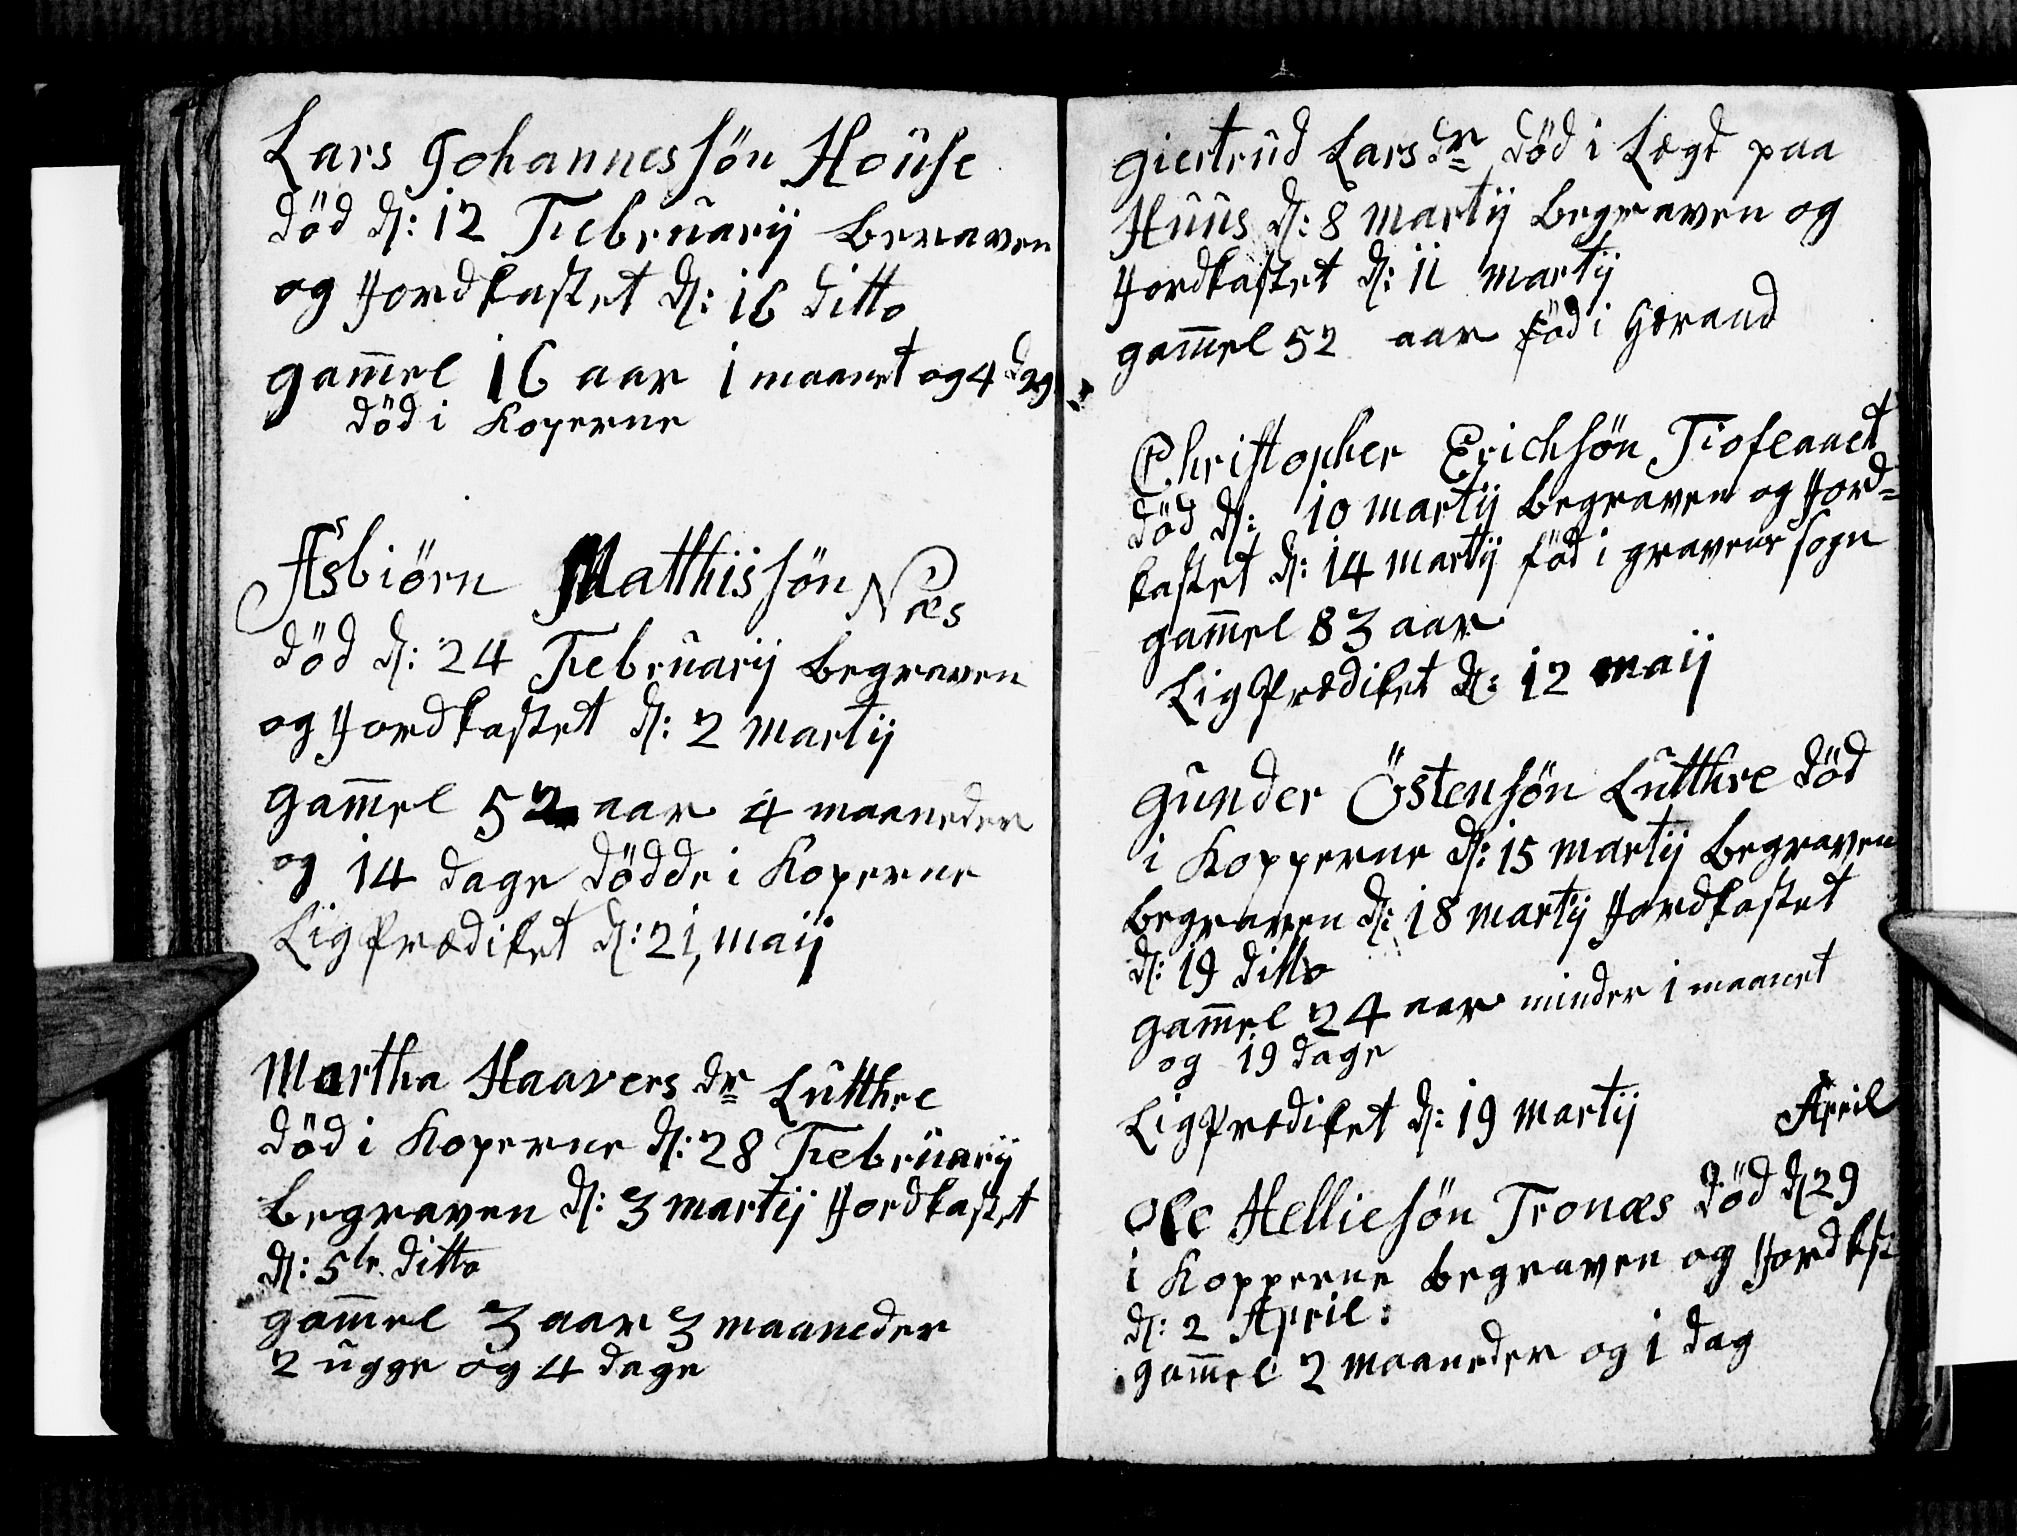 Lars Johannessön House
död d: 12 Februarij Beraven
og Jordkastet d: 16 ditto
gam̅el 16 aar 1 maanet og 4 dag
död i Koperne
Asbiörn Matthissön Næs
död d: 24 Februarij Begraven
og Jordkastet d: 2 Martij
gam̅el 52 aar 4 maaneder
og 14 dage dödde i Koperne
LigPrædiket d: 21, Maij
Martha Haavers dr Lutthre
död i Koperne d: 28 Februarij
Begraven d: 3 Martij Jordkastet
d: 5te ditto
gam̅el 3 aar 3 maaneder
2 ugge og 4 dage
giertrud Lars dr död i Lægd paa
Huus d: 8 Martij Begraven og
Jordkastet d: 11 Martij
gam̅el 52 aar föd i Gerand
Christopher Erichsön Fioseanet
död d: 10 Martij Begraven og Jord=
kastet d: 14 Martij föd i gravens sogn
gam̅el 83 aar
LigPrædiket d: 12 Maij
gunder Östensön Lutthre död
i Kopperne d: 15 Martij Begraven
Begraven d: 18 Martij Jordkastet
d: 19 ditto
gam̅el 24 aar minder 1 maanet
og 19 dage
LigPrædiket d: 19 Martij
April
Ole Helliesön Tronæs död d 29
i Kopperne Begraven og Jordkst
d: 2 April:
gam̅el 2 Maaneder og 1 dag